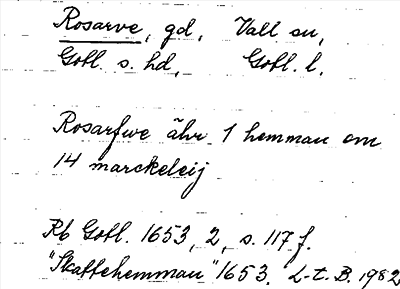 Rosarve, gd, Vall sn,
Gotl. s. hd, Gotl. l.
Rosarfwe ähr 1 hemman om
14 marckeleij
Rb Gotl. 1653, 2, s. 117 f.
"Skattehemman" 1653. L-t. B. 1982